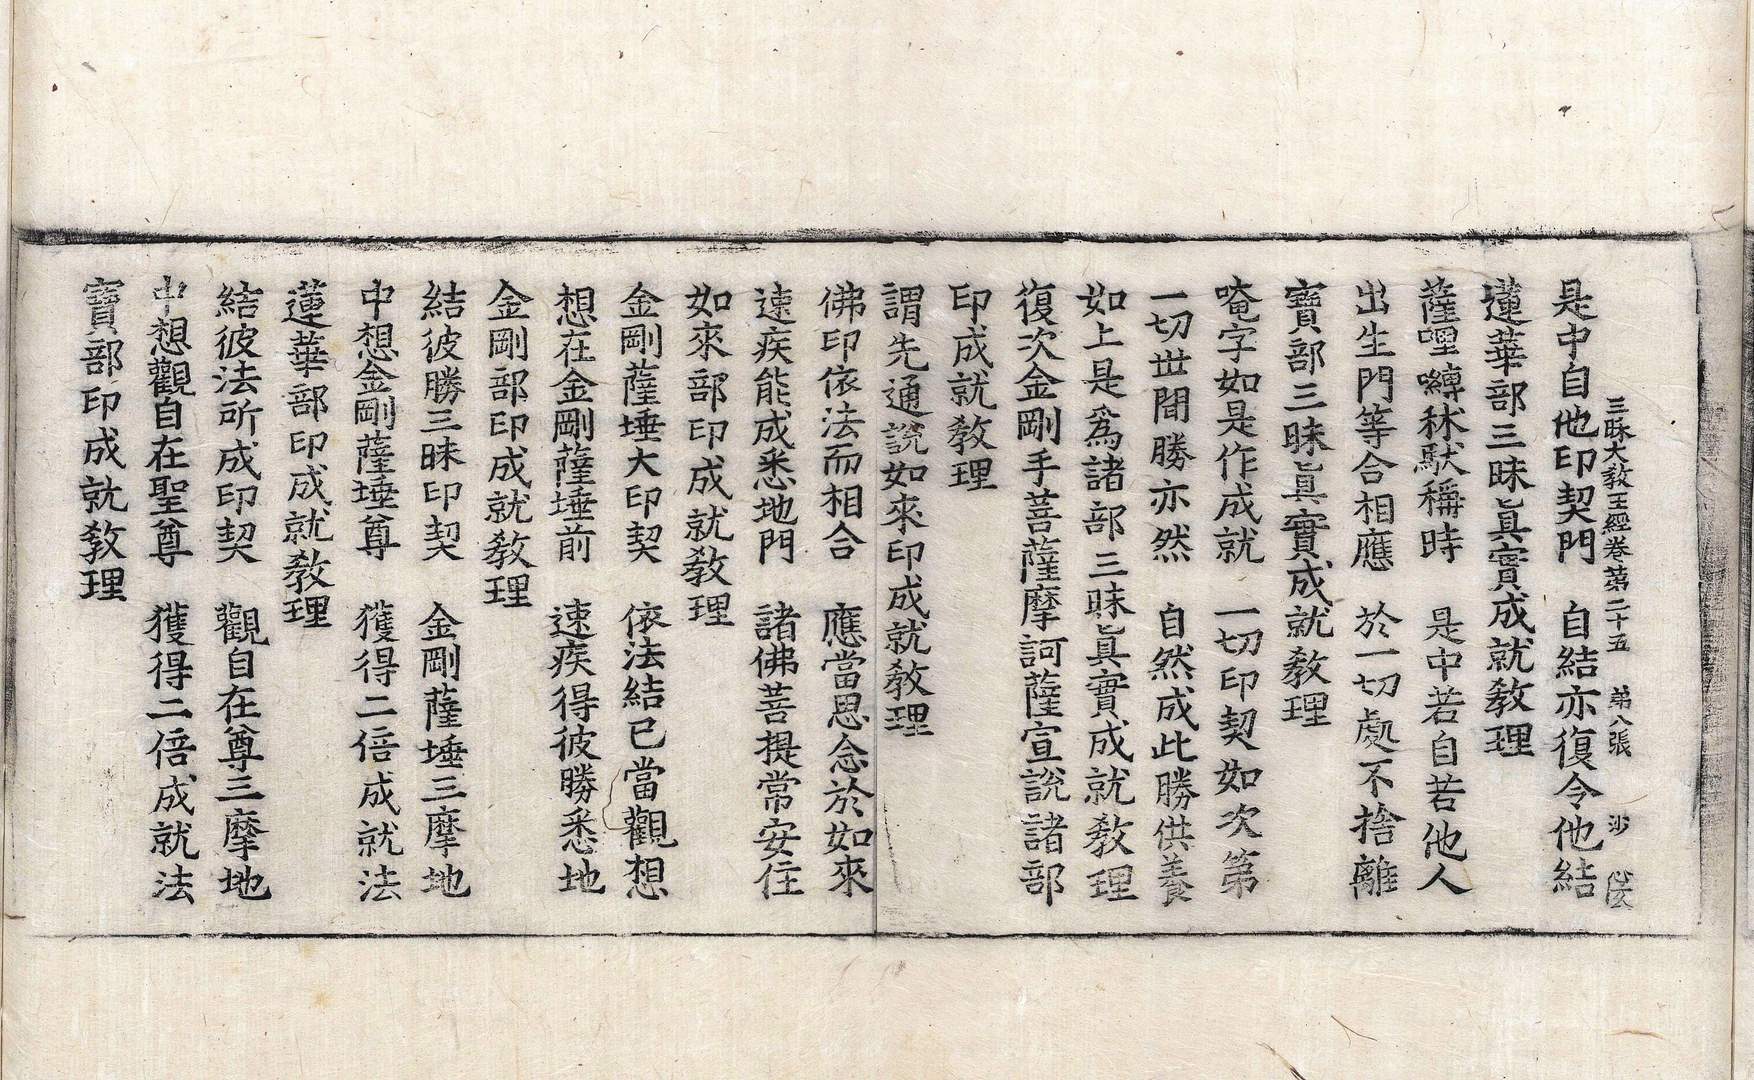 三昧大教王經卷第二十五 第八張 沙
是中自他印契門 自結亦復令他結
蓮華部三昧眞實成就教理
薩哩嚩秫馱稱時 是中若自若他人
出生門等合相應 於一切處不捨離
寶部三昧眞實成就教理
唵字如是作成就 一切印契如次第
一切世間勝亦然 自然成此勝供養
如上是爲諸部三昧眞實成就教理
復次金剛手菩薩摩訶薩宣說諸部
印成就教理
謂先通說如來印成就教理
佛印依法而相合 應當思念於如來
速疾能成悉地門 諸佛菩提常安住
如來部印成就教理
金剛薩埵大印契 依法結已當觀想
想在金剛薩埵前 速疾得彼勝悉地
金剛部印成就教理
結彼勝三昧印契 金剛薩埵三摩地
中想金剛薩埵尊 獲得二倍成就法
蓮華部印成就教理
結彼法所成印契 觀自在尊三摩地
中想觀自在聖尊 獲得二倍成就法
寶部印成就教理